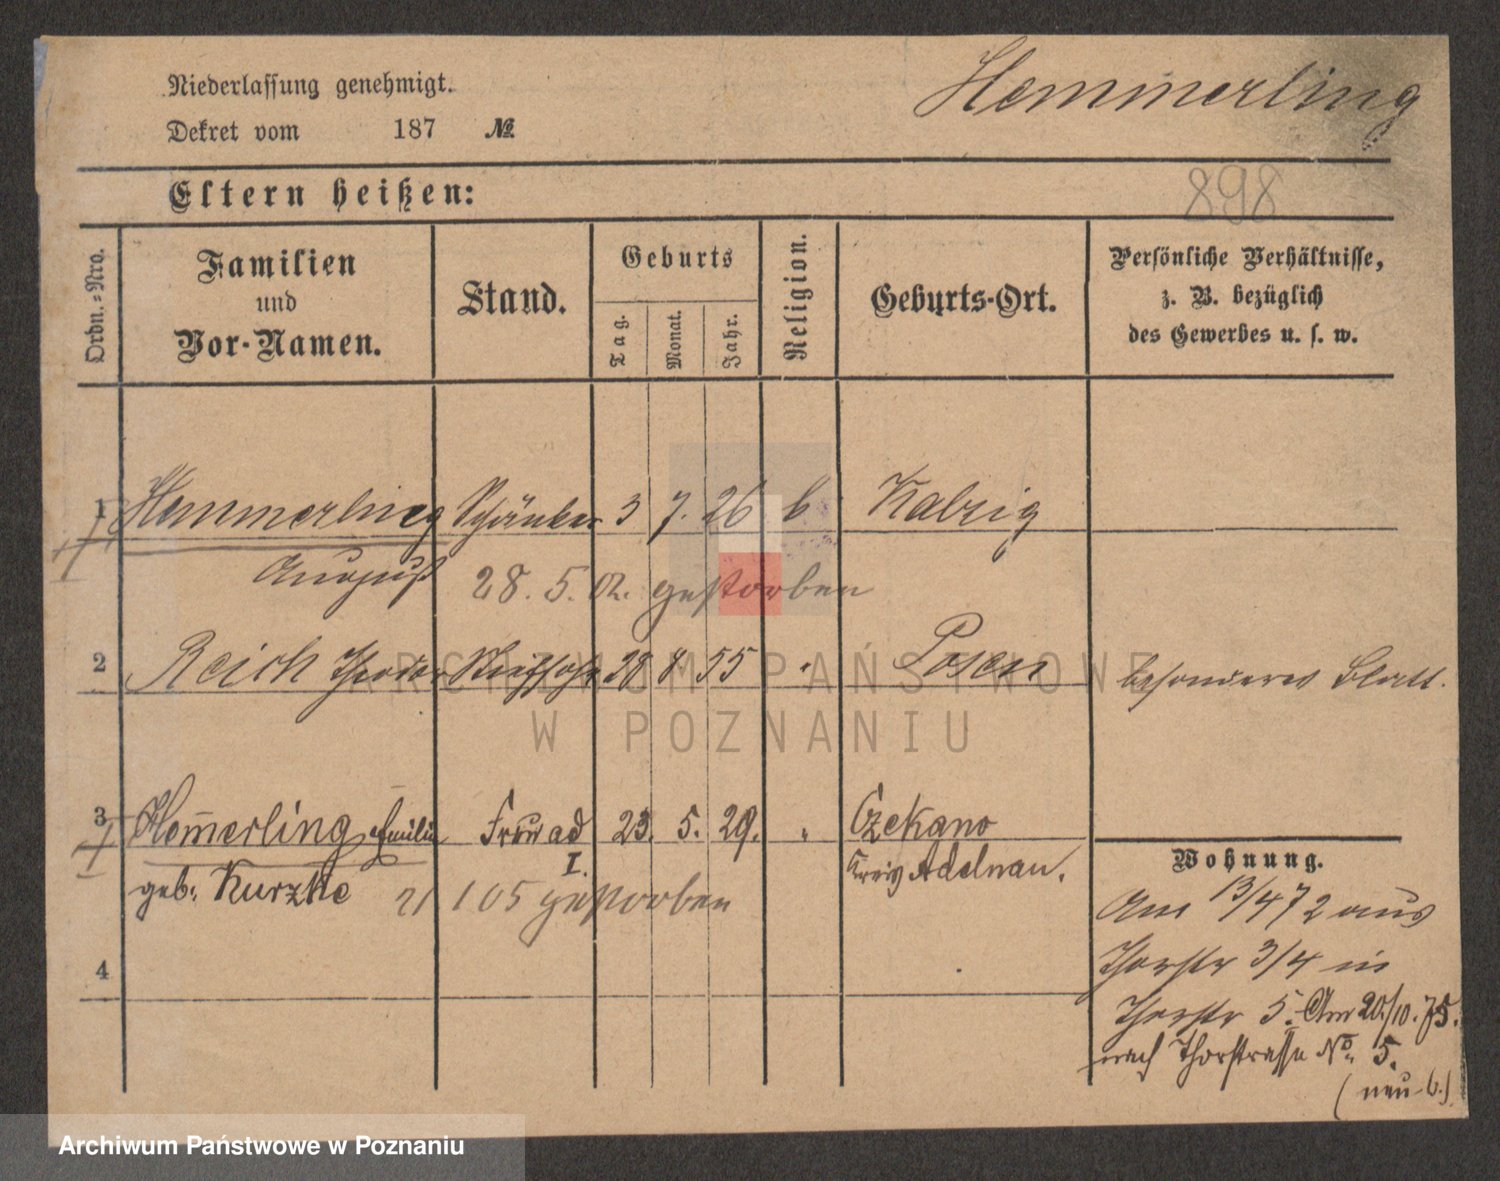 Niederlassung genehmigt.
Hemmerling
Dekret vom 187 №
Eltern heißen:
898
Ordn.=Nro.
Familien
und
Vor-Namen.
Stand.
Geburts
Tag.
Monat.
Jahr.
Religion.
Geburts-Ort.
Persönliche Verhältnisse,
z. B. bezüglich
des Gewerbes u. s. w.
1 Hemmerling Schänker 3 7. 26 Kabzig
August 28. 5. 02. gestorben
2 Reich Theodor Stiefsohn 28 8 55 " Posen besonderes Blatt.
3 Hem̅erling Emilie Frau ad 23. 5. 29. " Czekano
I. Kreis Adelnau.
geb: Kurzke 21 1 05 gestorben
Wohnung.
Am 13/4 72 aus
Thorstr 3/4 in
4
Thorstr 5. Am 20./10. 75.
nach Thorstrasse No. 5.
(neu 6.)
ARCHIWUM PAŃSTWOWE
W POZNANIU
Archiwum Państwowe w Poznaniu